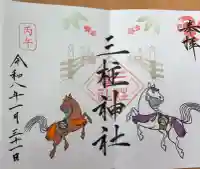 奉拝
三柱神社
丙午
令和八年一月三十一日